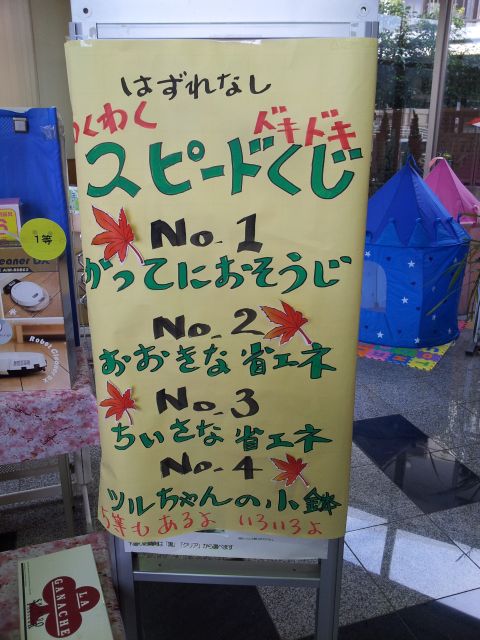 はずれなし
わくわく
ドキドキ
スピードくじ
No.1
かってにおそうじ
No.2
おおきな省エネ
No.3
ちいさな省エネ
No.4
ツルちゃんの小鉢
5等もあるよ いろいろよ
1等
Robot Cleaner
LA GANACHE